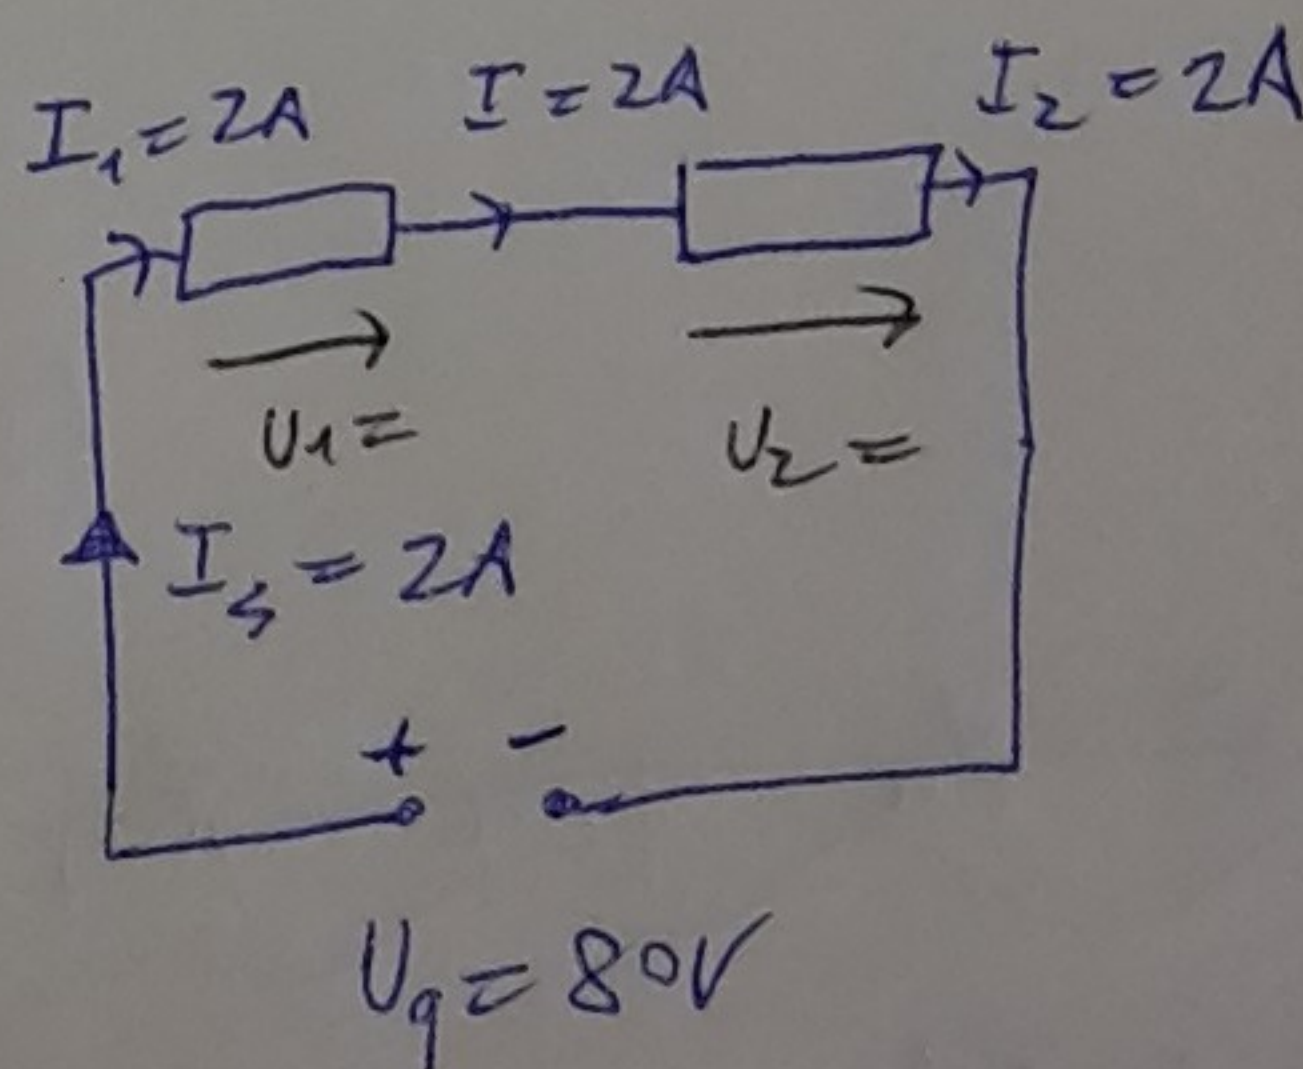 I₁ = 2A
I = 2A
I₂ = 2A
U₁ =
U₂ =
I₃ = 2A
+ -
Uq = 80V